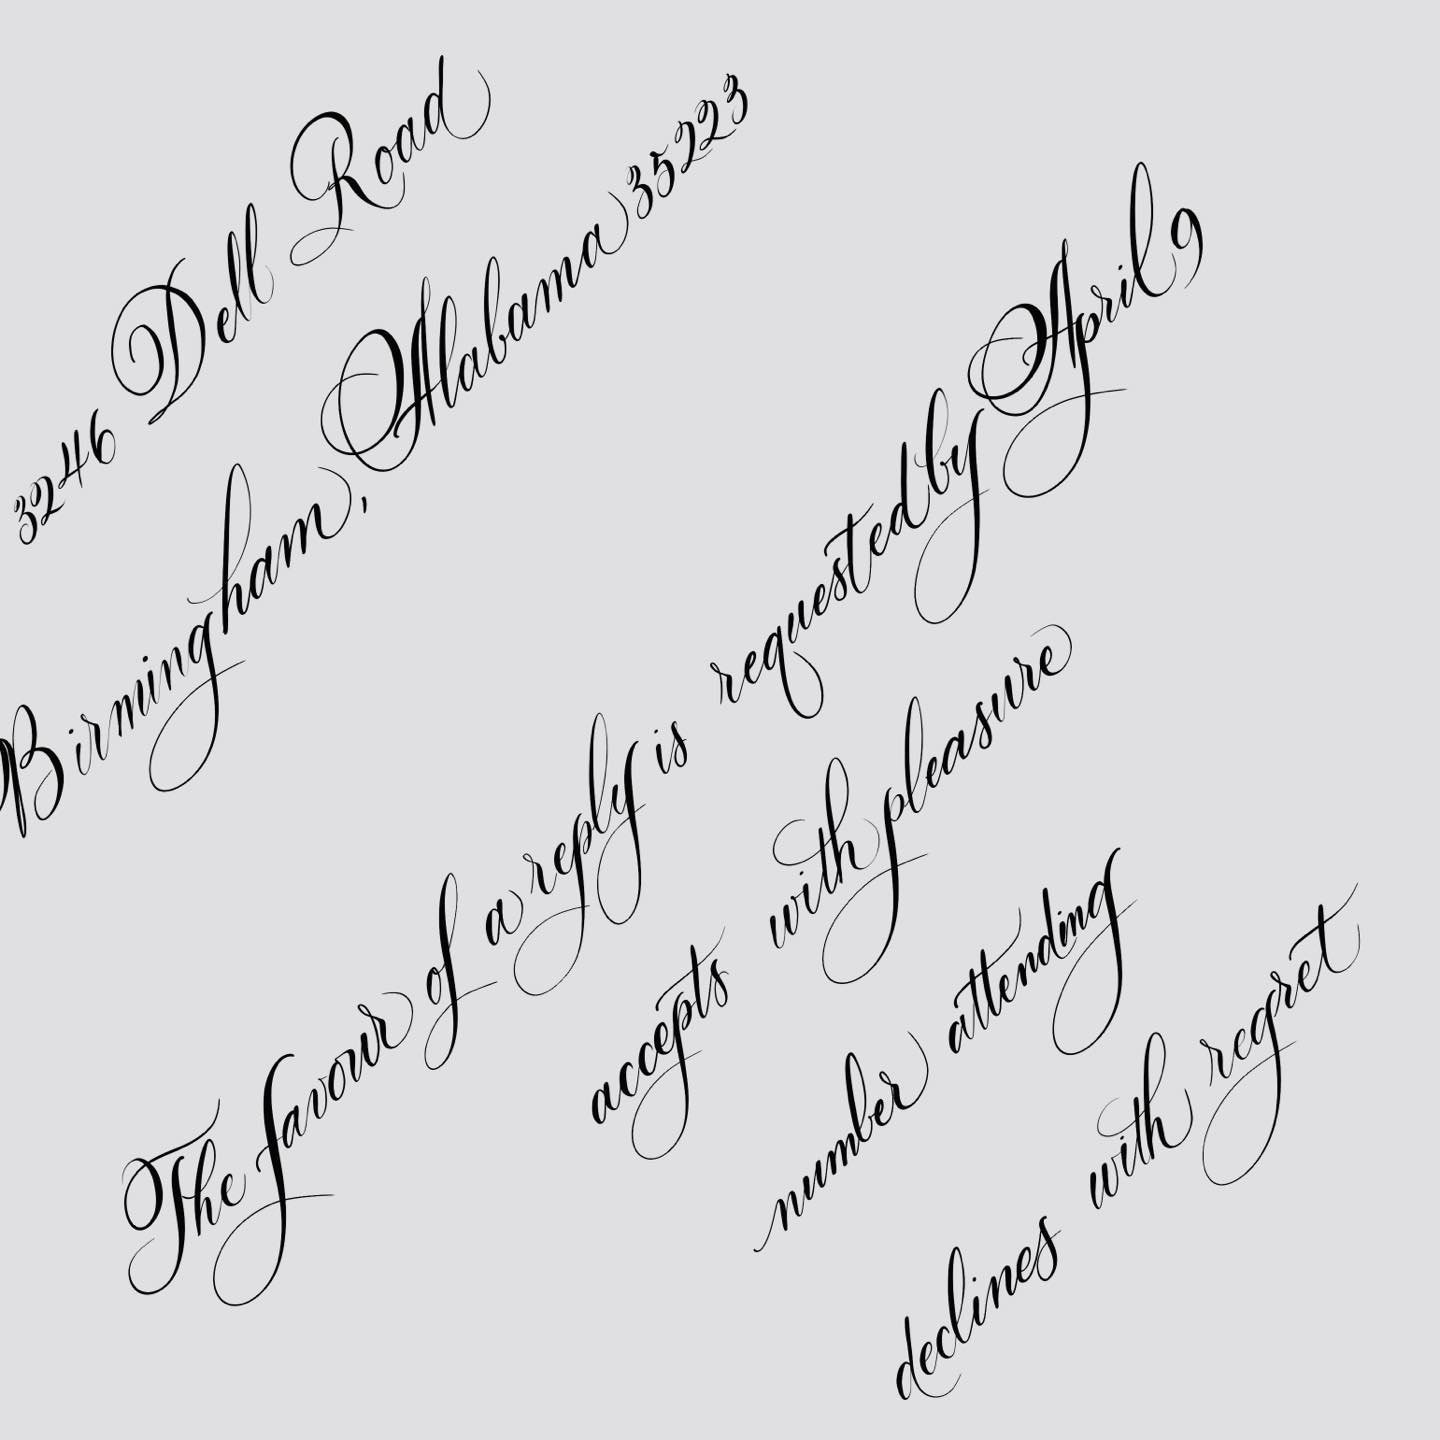 3246 Dell Road
Birmingham, Alabama 35223
The favour of a reply is requested by April 9
accepts with pleasure
number attending
declines with regret